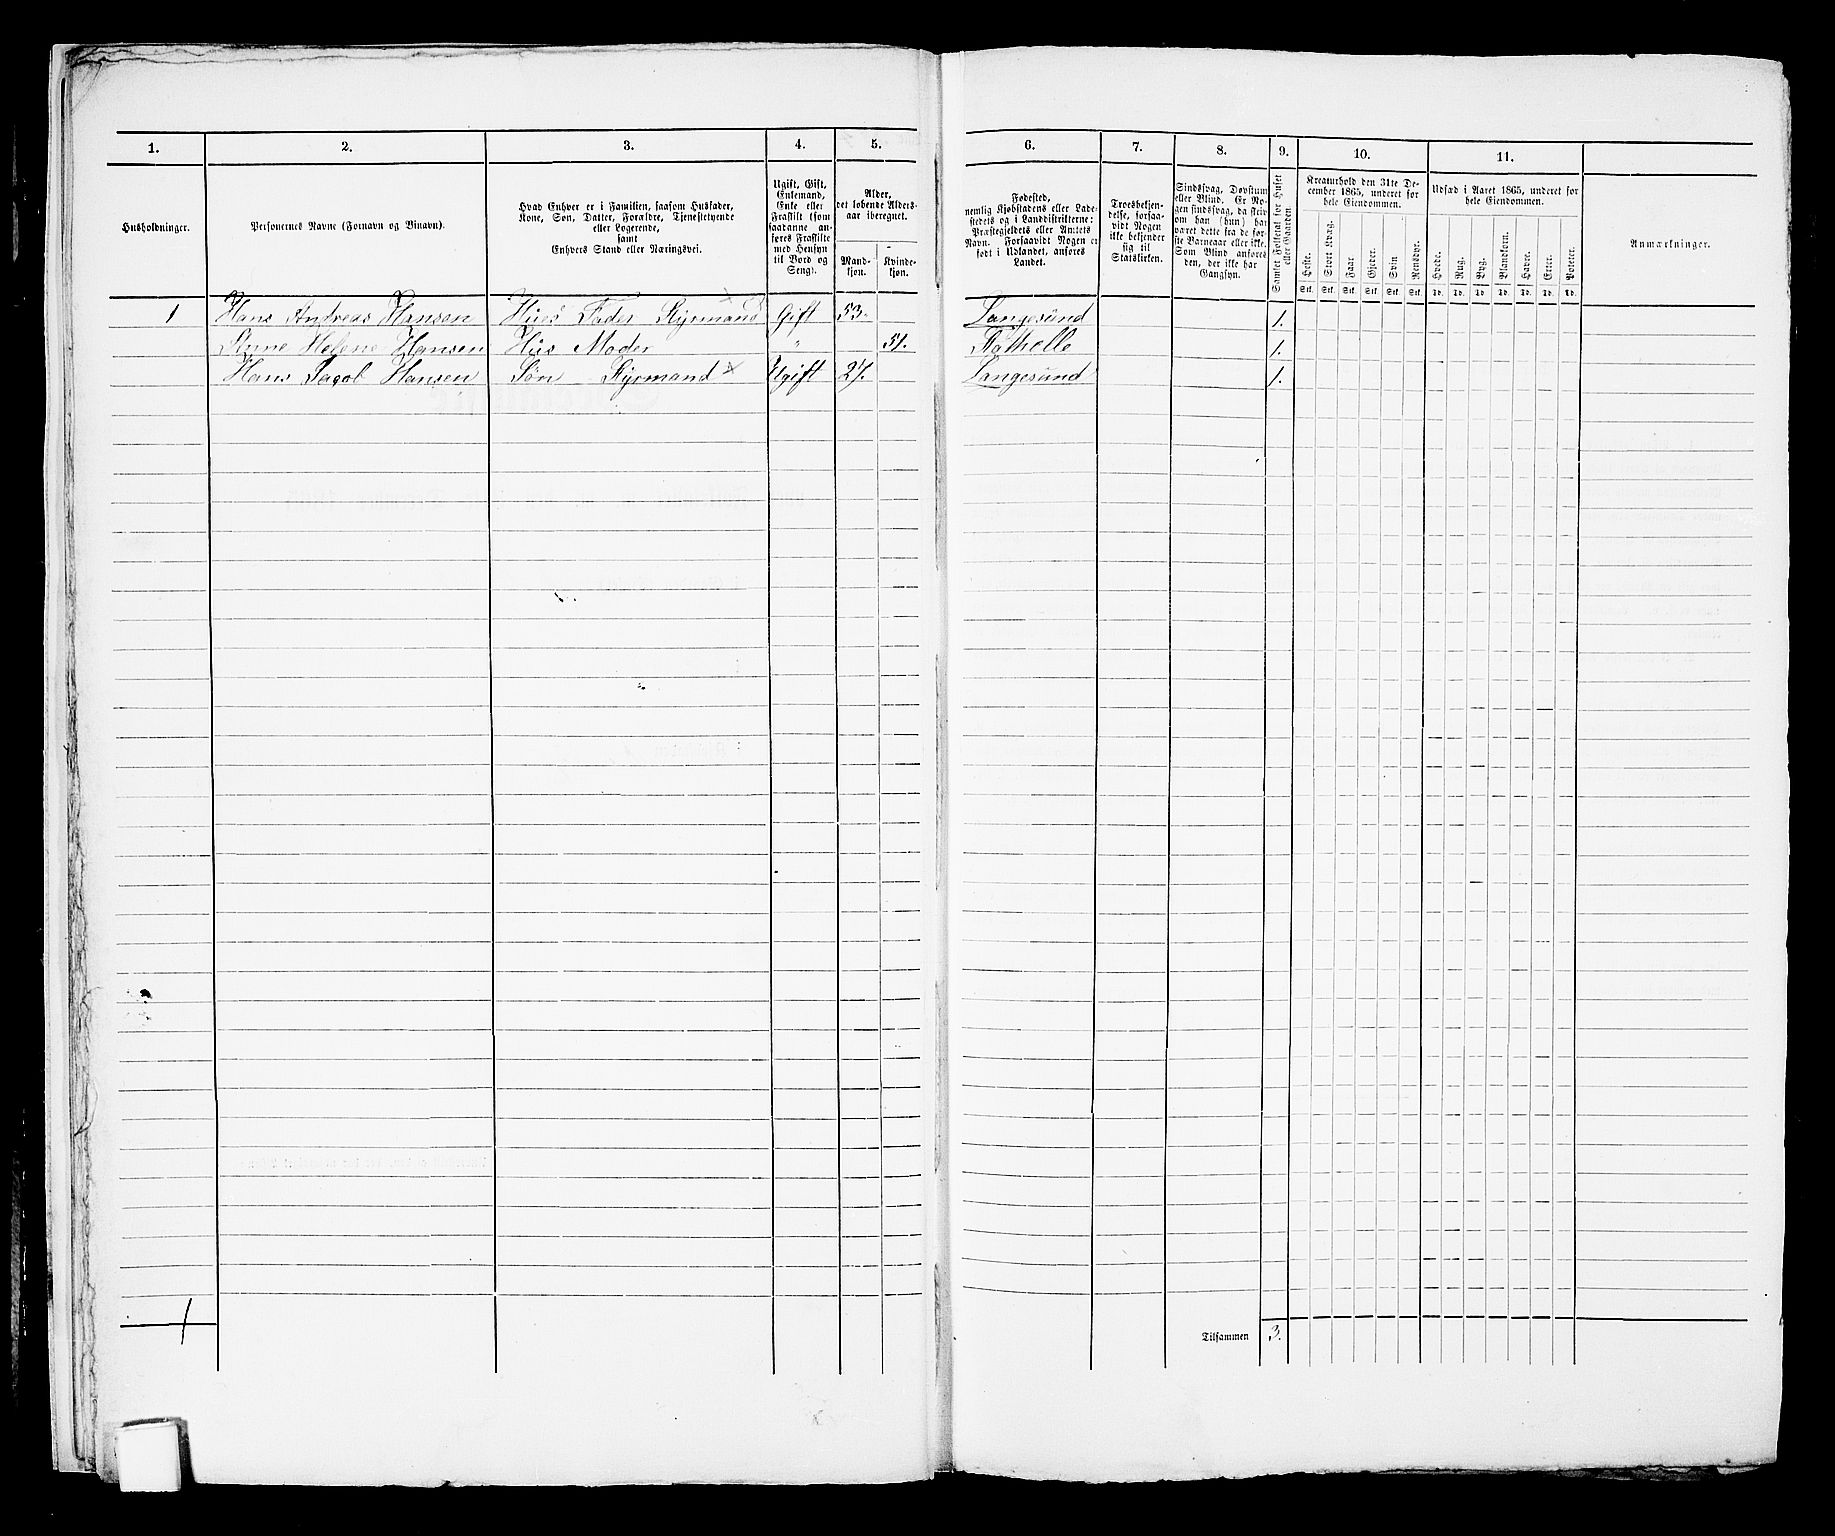 1. 2. 3. 4. 5. 6. 7. 8. 9. 10. 11.
Husholdninger.
Personernes Navne (Fornavn og Binavn).
Hvad Enhver er i Familien, saasom Husfader,
Kone, Søn, Datter, Forældre, Tjenestetyende
eller Logerende,
samt
Enhvers Stand eller Næringsvei.
Ugift, Gift,
Enkemand,
Enke eller
Fraskilt (som
saadanne an-
føres Fraskilte
med Hensyn
til Bord og
Seng).
Alder,
det løbende Alders-
aar iberegnet.
Mand-
kjøn.
Kvinde-
kjøn.
Fødested,
nemlig Kjøbstadens eller Lade-
stedets og i Landdistrikterne:
Præstegjeldets eller Amtets
Navn. Forsaavidt Nogen er
født i Udlandet, anføres
Landet.
Troesbekjen-
delse, forsaa-
vidt Nogen
ikke bekjender
sig til
Statskirken.
Sindssvag, Døvstum
eller Blind. Er No-
gen sindssvag, da skriv
om han (hun) har
været dette fra de før-
ste Barneaar eller ikke.
Som Blind anføres
den, der ikke har
Gangsyn.
Samlet Folketal for Huset
eller Gaarden
Kreaturhold den 31te De-
cember 1865, underet for
hele Eiendommen.
Heste. Stort Kvæg. Faar. Gjeder. Svin Rensdyr.
Stk. Stk. Stk. Stk. Stk. Stk.
Udsæd i Aaret 1865, underet for
hele Eiendommen.
Hvede. Rug. Byg. Blandkorn. Havre. Erter. Poteter.
Td. Td. Td. Td. Td. Td. Td.
Anmærkninger.
1 Hans Andreas Hansen Hues Fader Styrmand Gift 53. Langesund 1.
Anne Helene Hansen Hus Moder " 51. Stathelle 1.
Hans Jacob Hansen Søn Styrmand Ugift 27. Langesund 1.
1
Tilsammen 3.